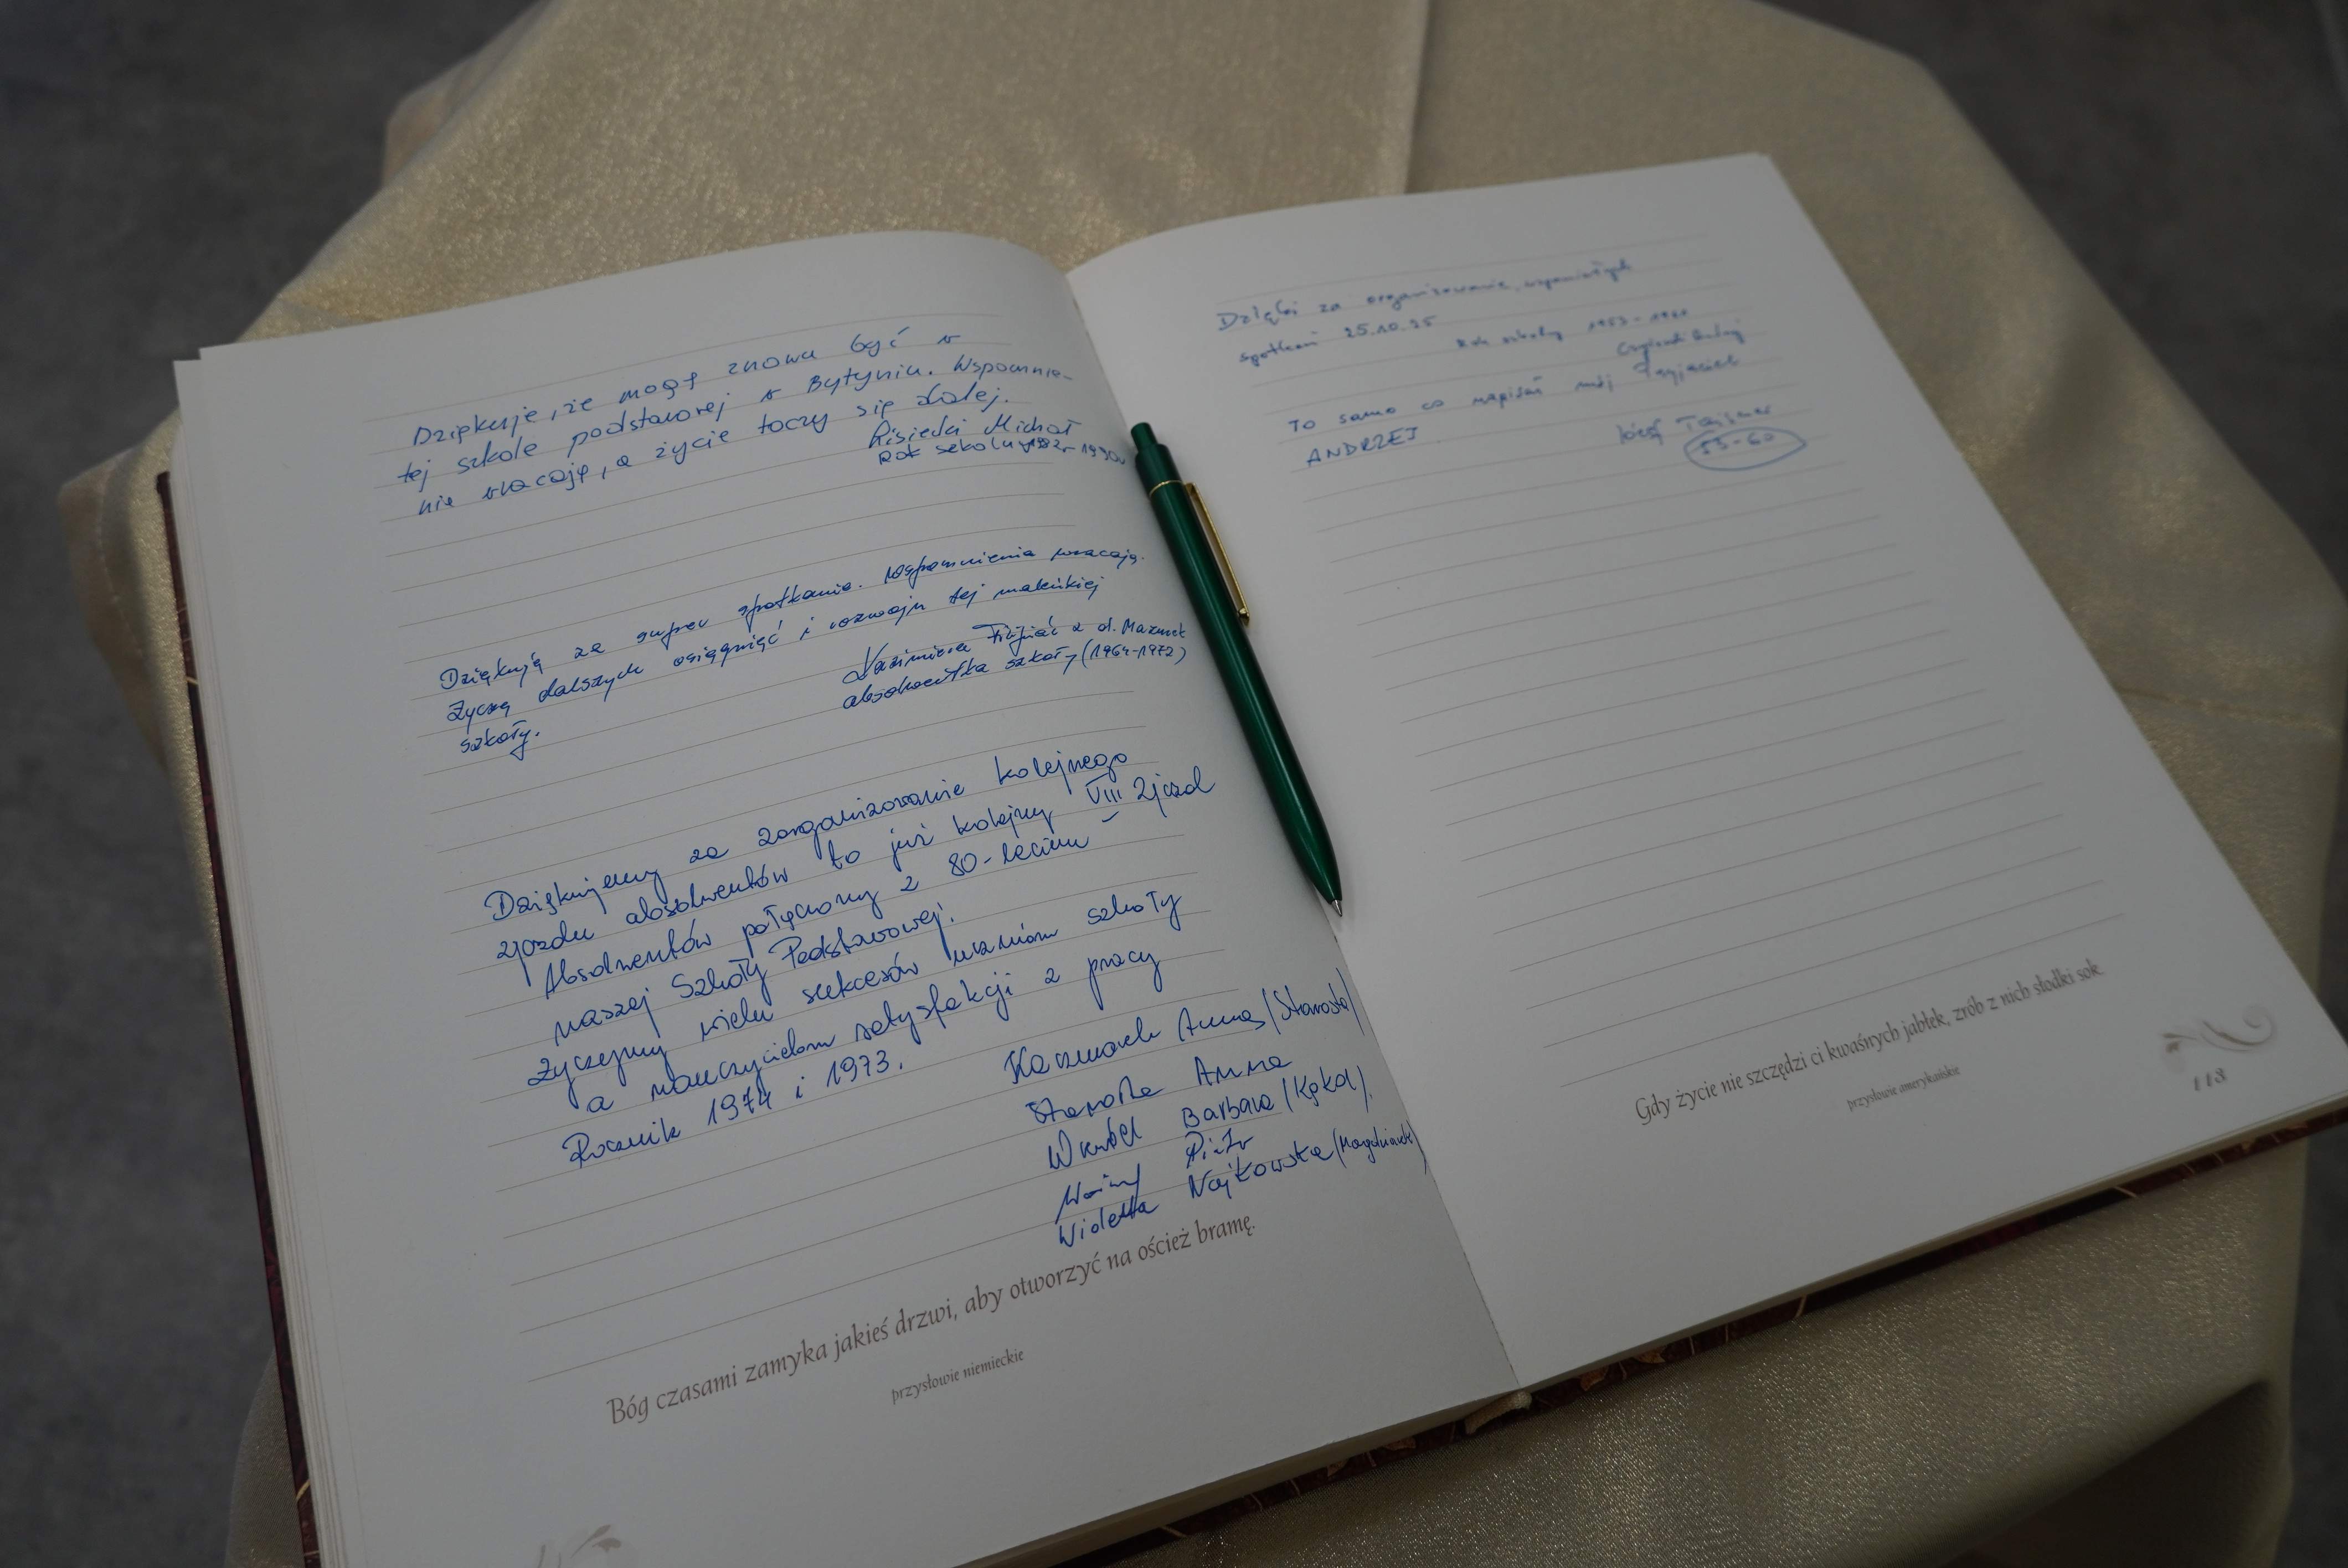 Dziękuję, że mogę znowu być w
tej szkole podstawowej w Bytyniu. Wspomnie-
nie wracają, a życie toczy się dalej.
Lisiecki Michał
Rok szkolny 1982-1990
Dziękuję za super spotkanie. Wspomnienia wracają.
Życzę dalszych osiągnięć i rozwoju tej maleńkiej
szkoły.
Kazimiera z d. Mazurek
absolwentka szkoły (1964-1972)
Dziękujemy za zorganizowanie kolejnego
zjazdu absolwentów to już kolejny VIII Zjazd
Absolwentów połączony z 80-leciem
naszej Szkoły Podstawowej.
Życzymy wielu sukcesów uczniom szkoły
a nauczycielom satysfakcji z pracy
Rocznik 1974 i 1973.
Kaczmarek Anna (Starosta)
Starosta Anna
Barbara (Kąkol)
Piotr
Wioletta Najkowska
Bóg czasami zamyka jakieś drzwi, aby otworzyć na oścież bramę.
przysłowie niemieckie
Dzięki za organizowanie wspaniałych
spotkań 25.10.25
Rok szkolny
To samo co napisał mój Przyjaciel
ANDRZEJ
Józef
53-60
Gdy życie nie szczędzi ci kwaśnych jabłek, zrób z nich słodki sok.
przysłowie amerykańskie
113